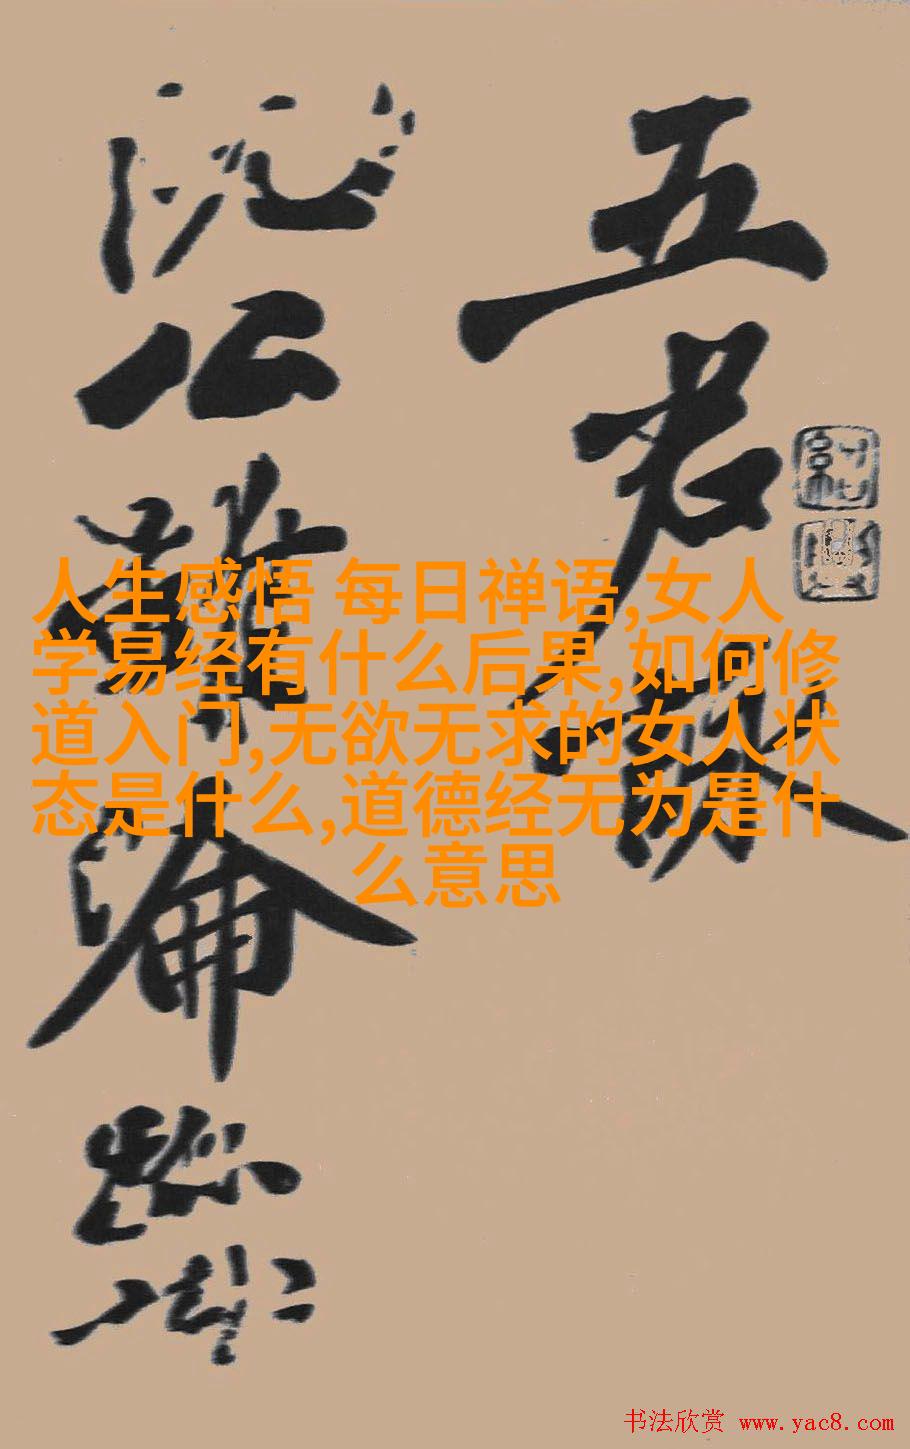 五君詠
阮公雖淪跡
人生感悟 每日禅语,女人
学易经有什么后果,如何修
道入门,无欲无求的女人状
态是什么,道德经无为是什
么意思
书法欣赏 www.yac8.com